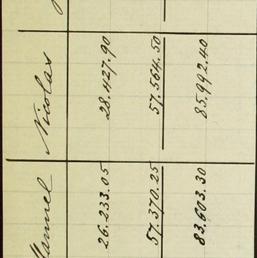 Manuel Nicolas
26.233.05 28.427.90
57.370.25 57.564.50
83.603.30 85.992.40